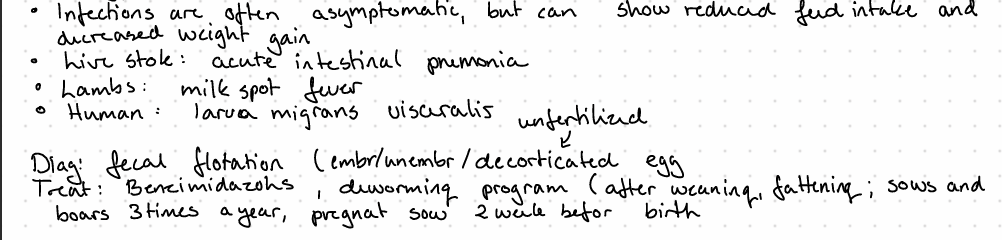 • Infections are often asymptomatic, but can show reduced feed intake and
decreased weight gain
• Live stok: acute intestinal pneumonia
• Lambs: milk spot fever
• Human: larva migrans visceralis
unfertilized
Diag: fecal flotation (embr/unembr/decorticated egg
Treat: Benzimidazols, deworming program (after weaning, fattening; sows and
boars 3 times a year, pregnat sow 2 week befor birth